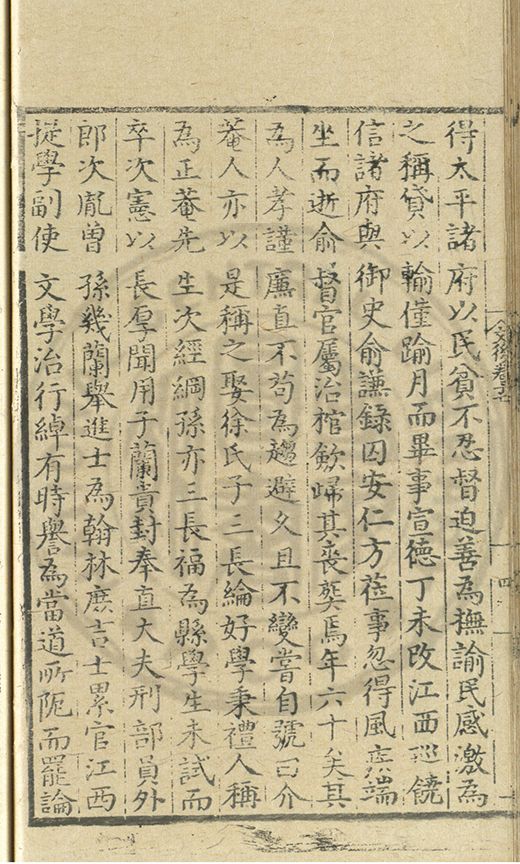 得太平諸府以民貧不忍督迫善為撫諭民感激為
之稱貸以輸僅踰月而畢事宣德丁未改江西巡饒
信諸府與御史俞謙錄囚安仁方蒞事忽得風疾端
坐而逝俞督官屬治棺斂歸其喪葬焉年六十矣其
為人孝謹廉直不苟為趨避久且不變嘗自號曰介
菴人亦以是稱之娶徐氏子三長綸好學秉禮人稱
為正菴先生次經綱孫亦三長福為縣學生未試而
卒次憲以長厚聞用子蘭貴封奉直大夫刑部員外
郎次胤曾孫幾蘭舉進士為翰林庶吉士累官江西
提學副使文學治行綽有時譽為當道所阨而罷論
四